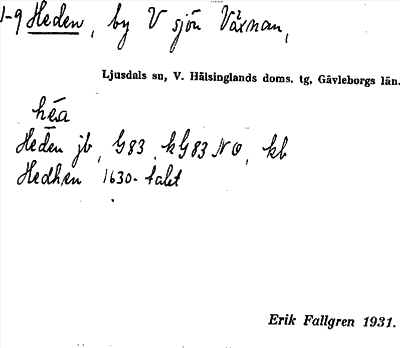 1-9 Heden, by V sjön Växnan,
Ljusdals sn, V. Hälsinglands doms. tg, Gävleborgs län.
hēa
Heden jb, G83, kG83 NO, kb
Hedhen 1630-talet
Erik Fallgren 1931.